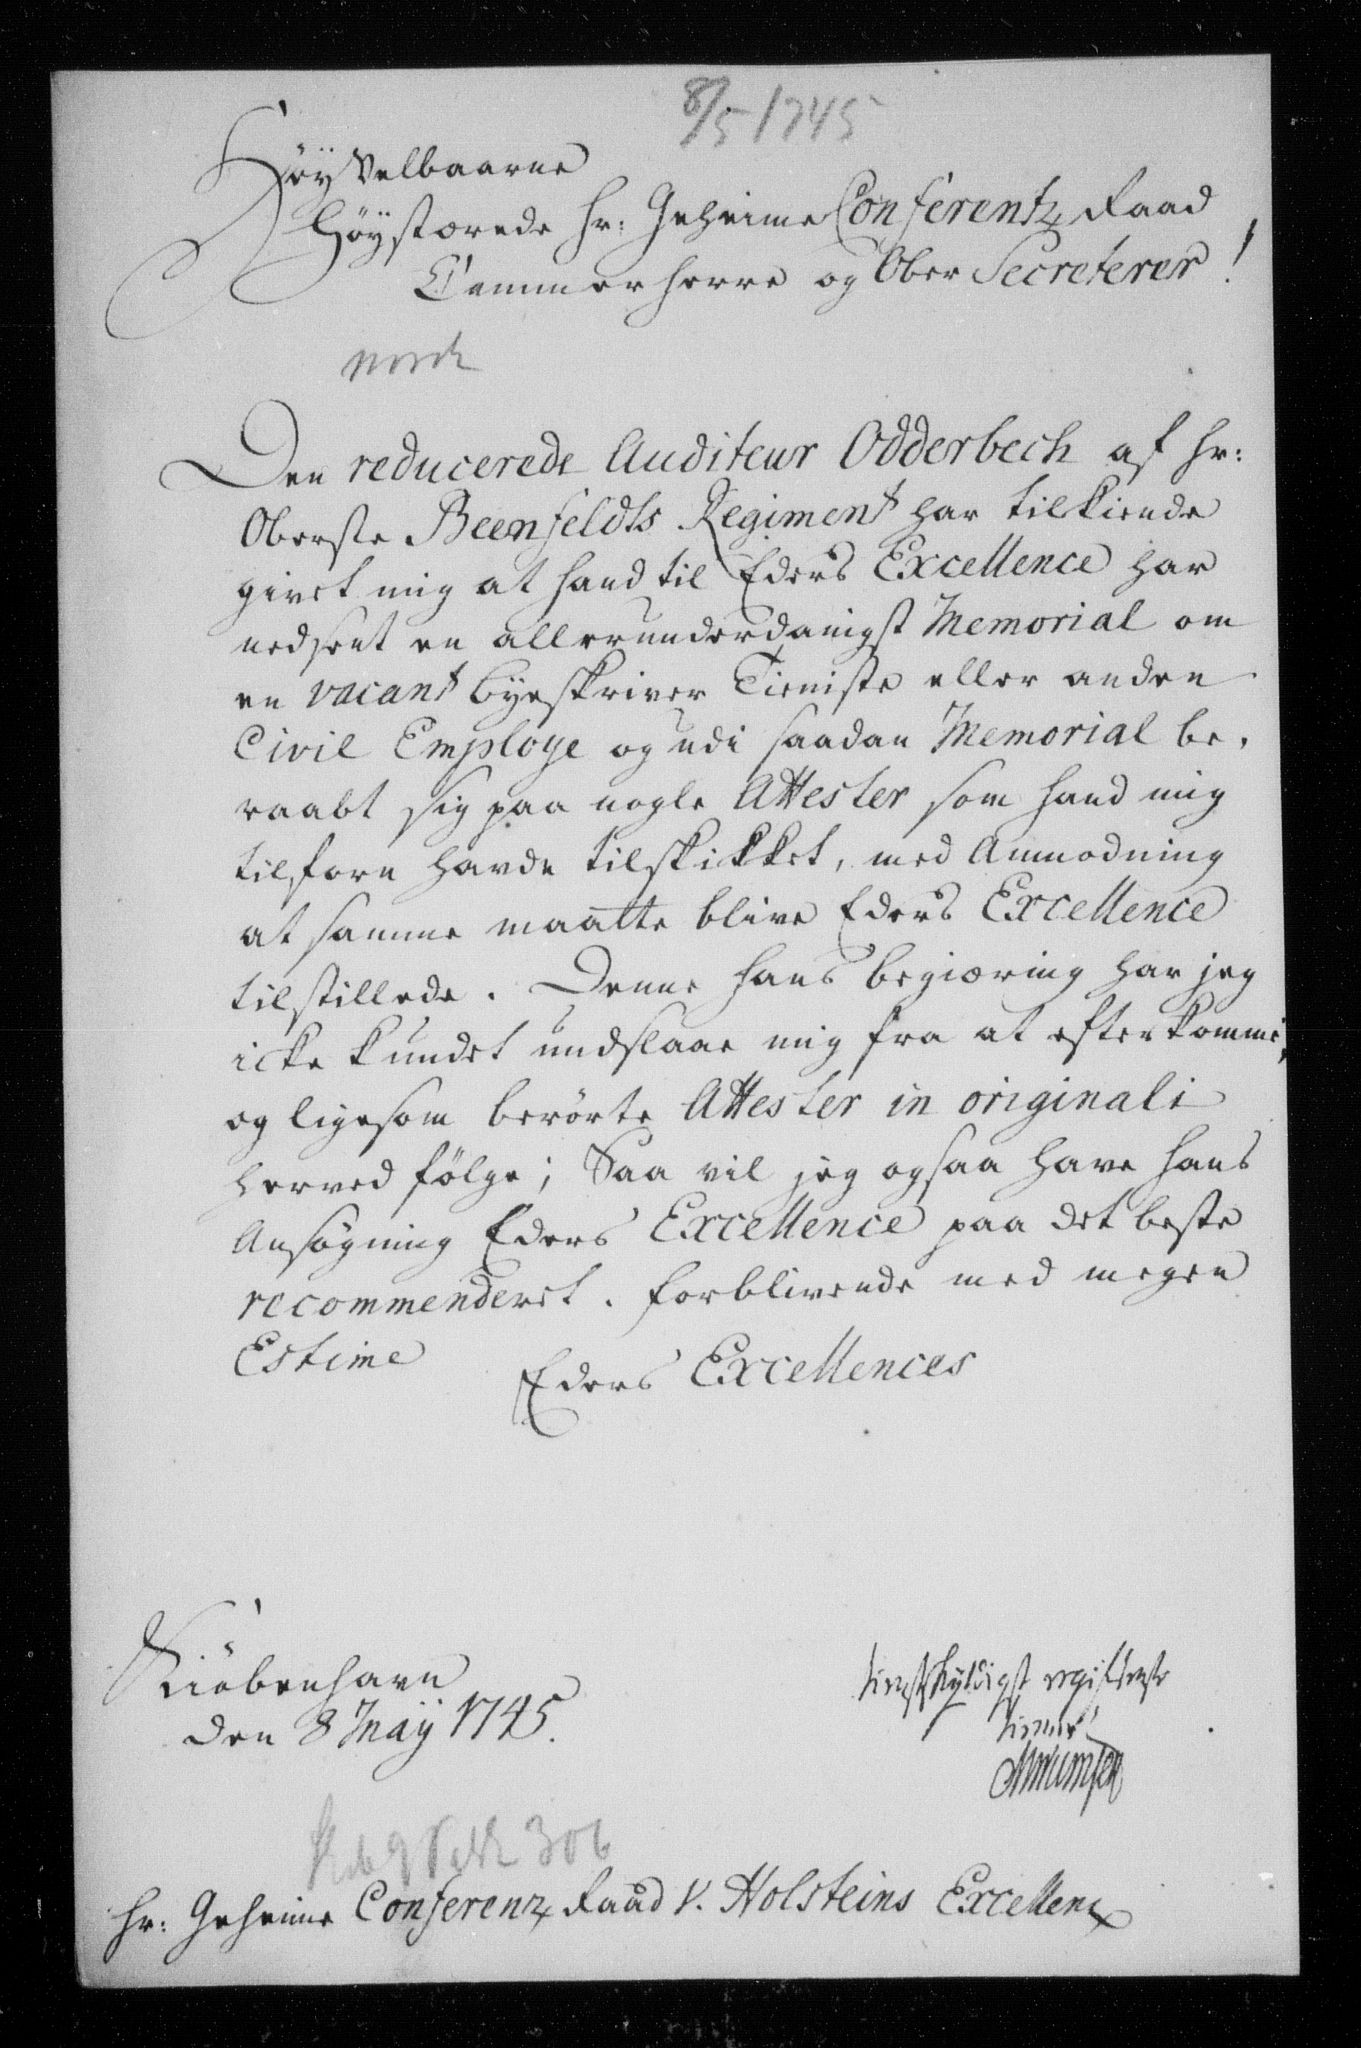 8/5 1745
Høy Velbaarne
Høystærede Hr: Geheime Conferentz Raad
Cammerherre og Ober Secreterer!
norsk
Den reducerede Auditeur Odderbech af Hr:
Oberste Beenfeldts Regiment har tilkiende
givet mig at hand til Eders Excellence har
nedsent en allerunderdanigst Memorial om
en vacant byeskriver Tieniste eller anden
Civil Employe og udi saadan Memorial be,
raabt sig paa nogle Attester som hand mig
tilforn havde tilskikket, med Anmodning
at samme maatte blive Eders Excellence
tilstillede. Denne hans begiæring har jeg
icke kundet undslaae mig fra at efterkomme,
og ligesom berørte Attester in originali
herved følge; Saa vil jeg ogsaa have hans
Ansøgning Eders Excellence paa det beste
recommenderet. forblivende med megen
Estime
Eders Excellences
Kiøbenhavn
den 8 Maÿ 1745.
tienstskyldigst
tiener
306
Hr: Geheime Conferenz Raad v. Holsteins Excellenz